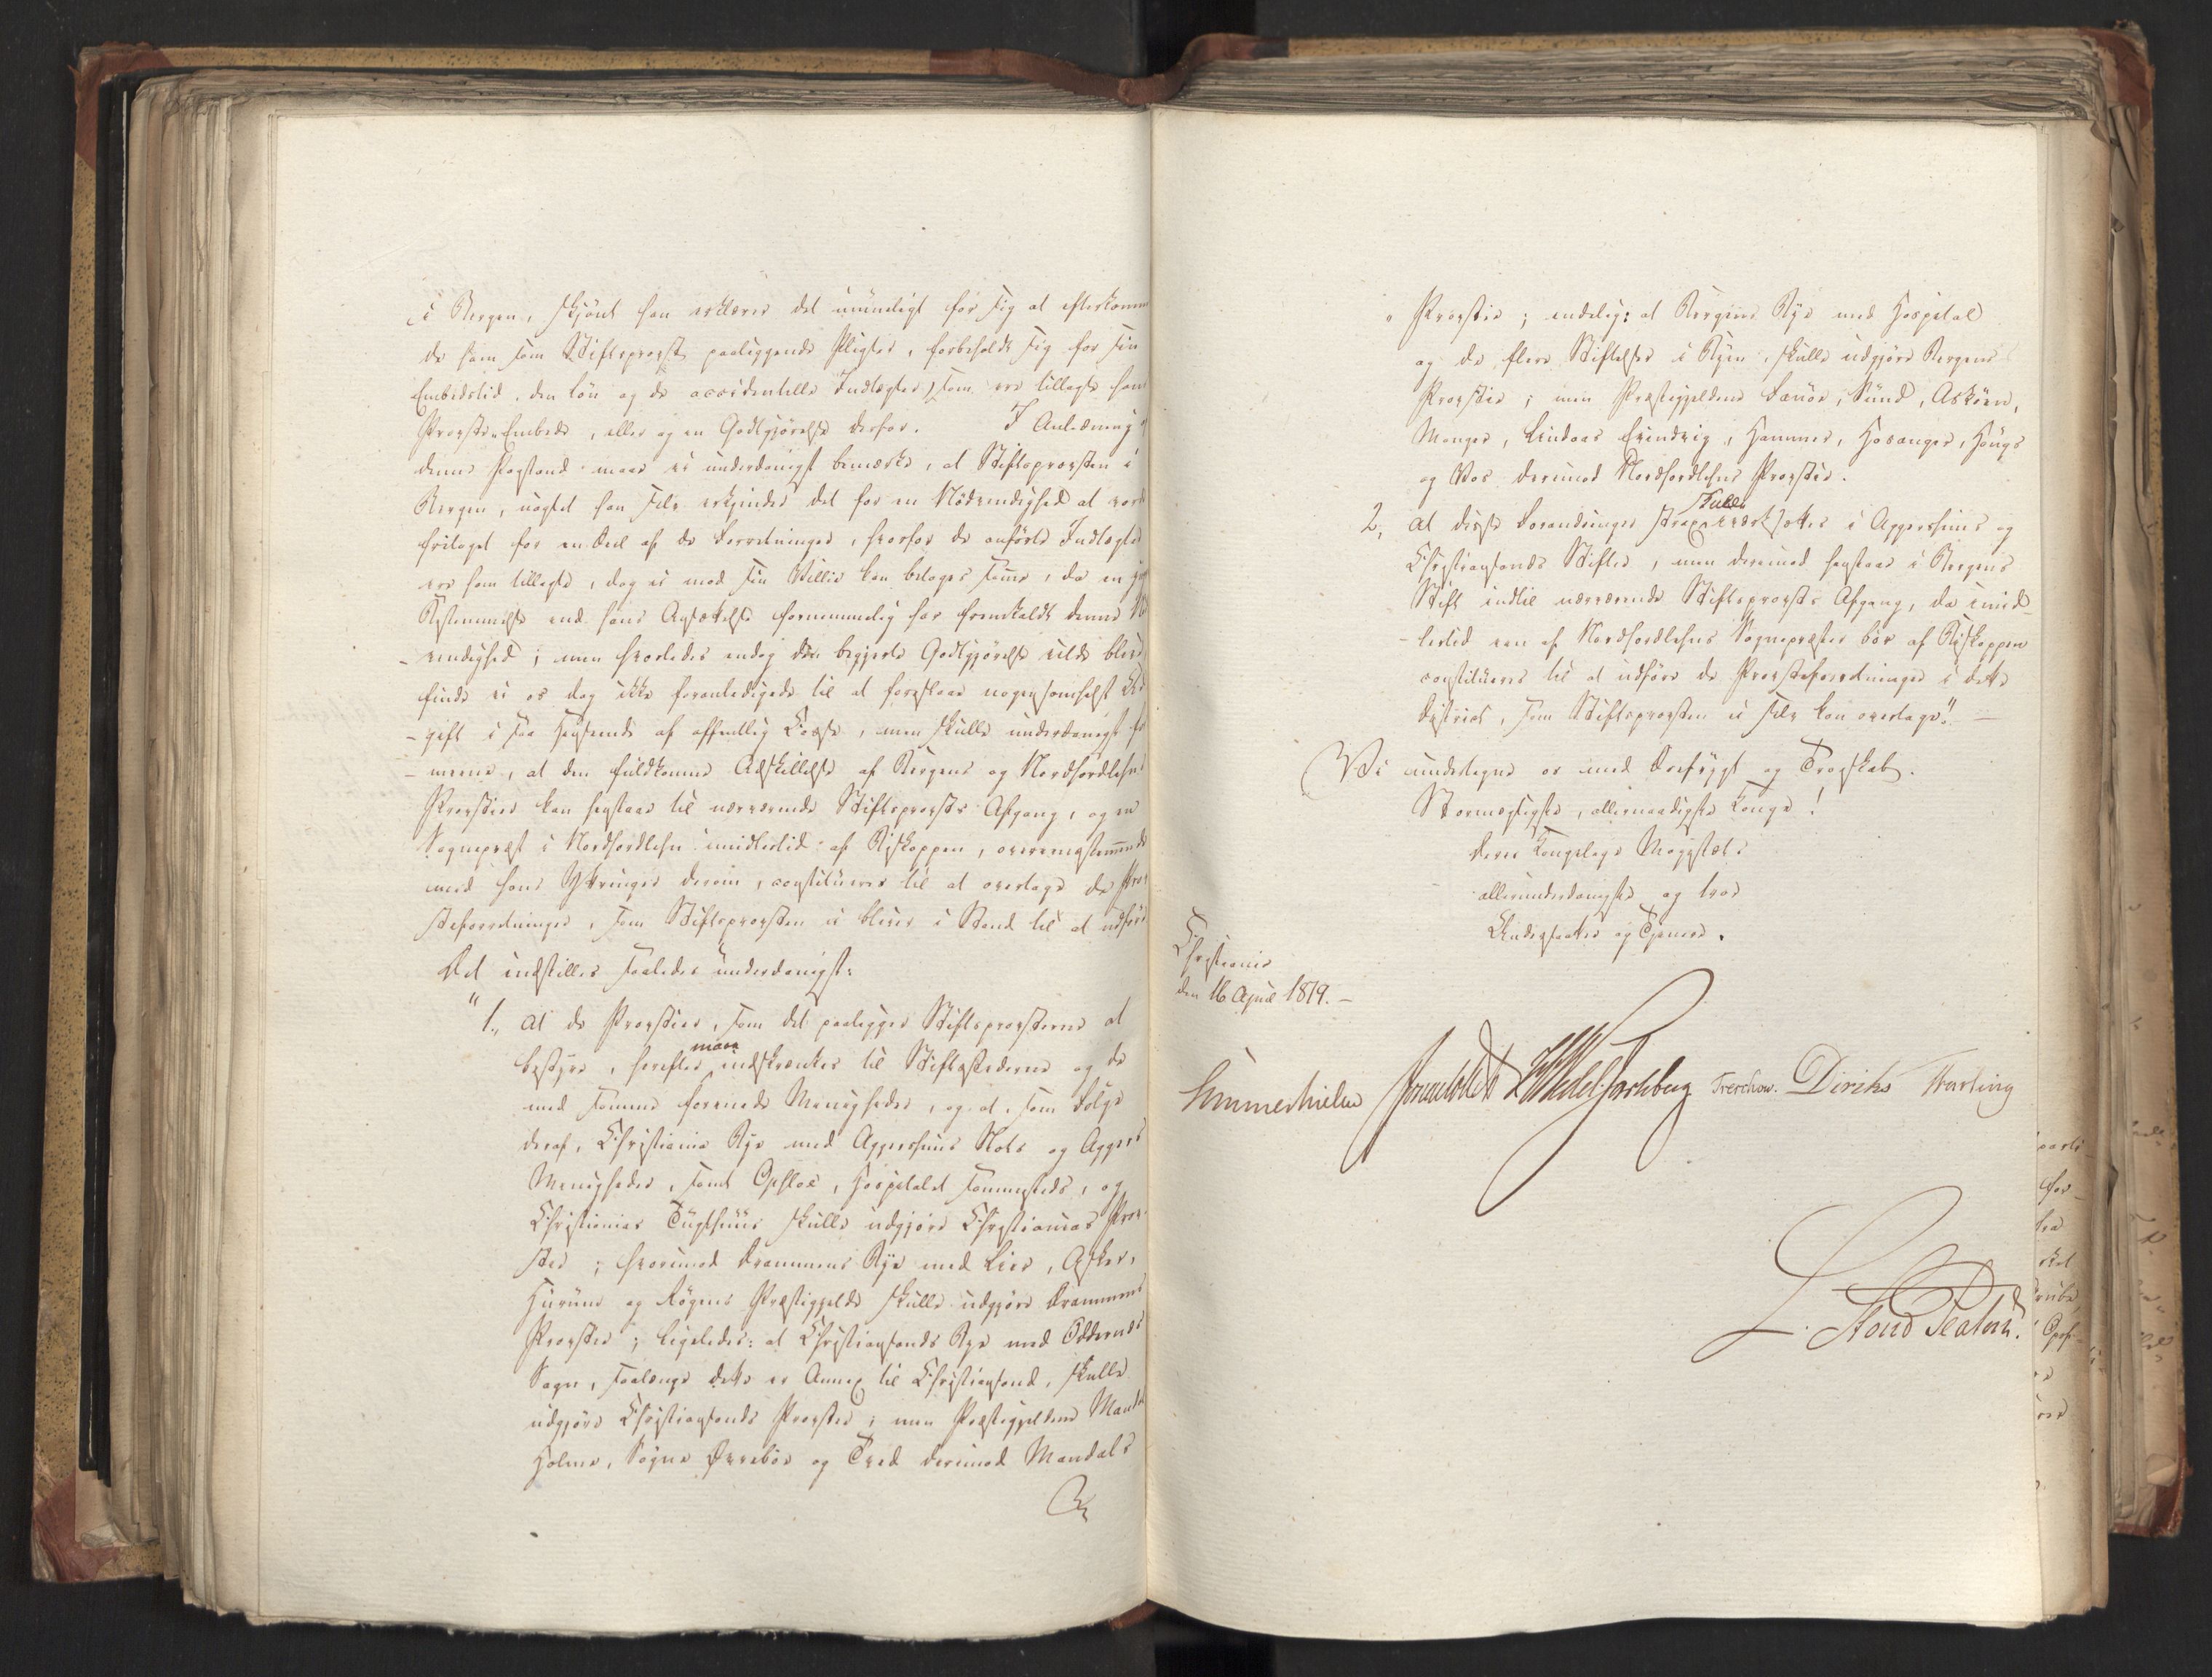 i Bergen, skjönt han erklærer det umueligt for sig at efterkomme
de ham som Stiftsprovst paaliggende Pligter, forbeholdt sig for sin
Embedstid, den Lön og de accidentelle Indtægter, som ere tillagte hans
Provste-Embede, eller og en Godtgjörelse derfor. I Anledning af
denne Paastand maae vi underdanigst bemærke, at Stiftsprovsten i
Bergen, uagtet han selv erkjender det for en Nödvendighed at vorde
fritaget for en Deel af de Forretninger, hvorfor de anförte Indtægter
ere ham tillagte, dog ei mod sin Villie kan betages samme, da en
Bestemmelse end hans Ansættelse fornemmelig har fremkaldt denne Nöd-
vendighed; men hvorledes endog den begjerte Godtgjörelse vilde blive
finde vi os dog ikke foranledigede til at foreslaae nogensomhelst Ud-
-gift i saa Henseende af offentlig Casse, men skulle underdanigst for-
-mene, at den fuldkomne Adskillelse af Bergens og Nordhordlehns
Provstier kan henstaae til nærværende Stiftsprovsts Afgang, og en
Sognepræst i Nordhordlehn imidlertid af Biskoppen, overeensstemmende
med hans Yttringer derom, constitueres til at overtage de Prov-
steforretninger, som Stiftsprovsten ei bliver i Stand til at udföre
Det indstilles saaledes underdanigst:
"1., At de Provstier, som det paaligger Stiftsprovsterne at
bestyre, herefter maae indskrænkes til Stiftsstæderne og de
med samme forenede Menigheder, og at, som Fölge
deraf, Christiania Bye med Aggershuus Slots og Aggers
Menigheder, samt Opsloe, Hospitalet sammesteds, og
Christianias Tugthuus skulle udgjöre Christianias Prov-
stie; hvorimod Drammens Bye med Lier, Asker,
Hurum og Rögens Præstegjelde skulle udgjöre Drammens
Provstie; ligeledes: at Christiansands Bye med Oddernæs
Sogn, saalænge dette er Annex til Christiansand, skulle
udgjöre Christiansands Provstie; men Præstegjeldene Mandal
Holme, Sögne Övrebö og Tved derimod Mandals
" Provstie; endelig: at Bergens Bye med Hospital
og de flere Stiftelser i Byen, skulle udgjöre Bergens
Provstie; men Præstegjeldene Fanöe, Sund, Asköen,
Manger, Lindaas Evindvig, Hammer, Hosanger, Hougs
og Vos derimod Nordhordlehns Provstie.
2., At disse Forandringer strax skulle iværksættes i Aggershuus og
Christiansands Stifter, men derimod henstaae i Bergens
Stift indtil nærværende Stiftsprovsts Afgang, da imid-
-lertid een af Nordhordlehns Sognepræster bör af Biskoppen
constitueres til at udföre de Provsteforretninger i dette
District, som Stiftsprovsten ei selv kan overtage". —
Vi undertegne os med Ærefrygt og Troeskab.
Stormægtigste, allernaadigste Konge!
Deres Kongelige Majestæts
allerunderdanigste og troe
Undersaatter og Tjenere.
Christiania
den 16 April 1819. —
Sommerhielm Krumbholdt Wedel Jarlsberg Treschow. Diriks Fasting
L. Stoud Platou.